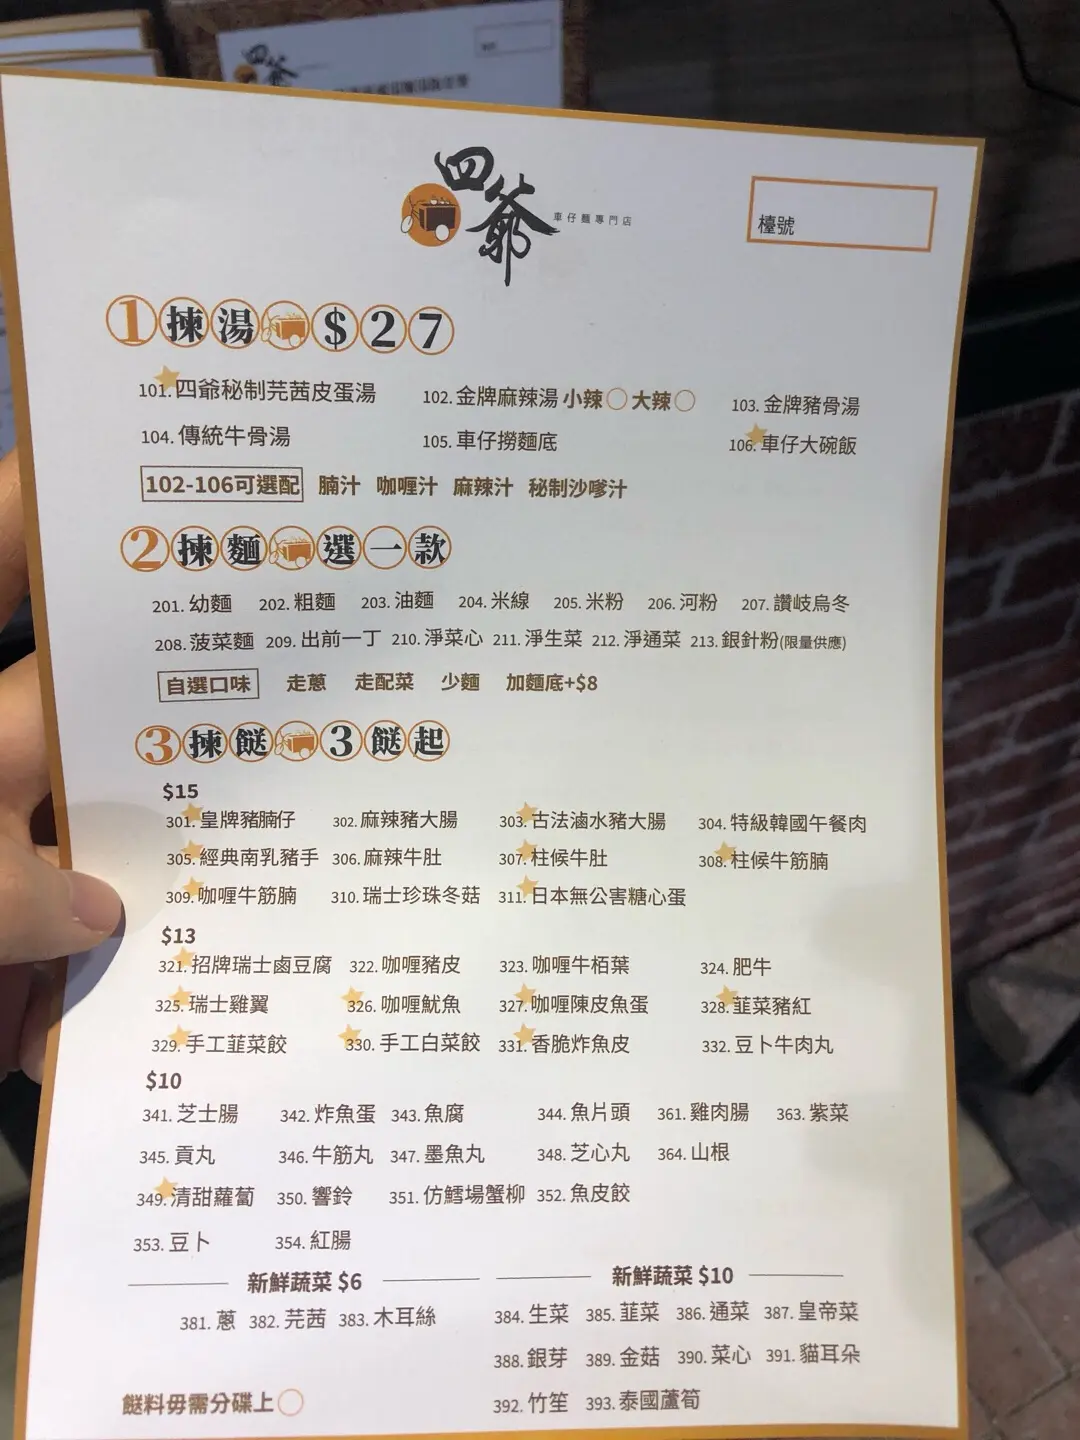 四爺
車仔麵專門店
檯號
1揀湯$27
101.四爺秘制芫茜皮蛋湯 102.金牌麻辣湯 小辣 大辣 103.金牌豬骨湯
104.傳統牛骨湯 105.車仔撈麵底 106.車仔大碗飯
102-106可選配 腩汁 咖喱汁 麻辣汁 秘制沙嗲汁
2揀麵選一款
201.幼麵 202.粗麵 203.油麵 204.米線 205.米粉 206.河粉 207.讚岐烏冬
208.菠菜麵 209.出前一丁 210.淨菜心 211.淨生菜 212.淨通菜 213.銀針粉(限量供應)
自選口味 走蔥 走配菜 少麵 加麵底+$8
3揀餸3餸起
$15
301.皇牌豬腩仔 302.麻辣豬大腸 303.古法滷水豬大腸 304.特級韓國午餐肉
305.經典南乳豬手 306.麻辣牛肚 307.柱候牛肚 308.柱候牛筋腩
309.咖喱牛筋腩 310.瑞士珍珠冬菇 311.日本無公害糖心蛋
$13
321.招牌瑞士鹵豆腐 322.咖喱豬皮 323.咖喱牛栢葉 324.肥牛
325.瑞士雞翼 326.咖喱魷魚 327.咖喱陳皮魚蛋 328.韮菜豬紅
329.手工韮菜餃 330.手工白菜餃 331.香脆炸魚皮 332.豆卜牛肉丸
$10
341.芝士腸 342.炸魚蛋 343.魚腐 344.魚片頭 361.雞肉腸 363.紫菜
345.貢丸 346.牛筋丸 347.墨魚丸 348.芝心丸 364.山根
349.清甜蘿蔔 350.響鈴 351.仿鱈場蟹柳 352.魚皮餃
353.豆卜 354.紅腸
新鮮蔬菜 $6 新鮮蔬菜 $10
381.蔥 382.芫茜 383.木耳絲 384.生菜 385.韮菜 386.通菜 387.皇帝菜
388.銀芽 389.金菇 390.菜心 391.貓耳朵
餸料毋需分碟上 392.竹笙 393.泰國蘆筍